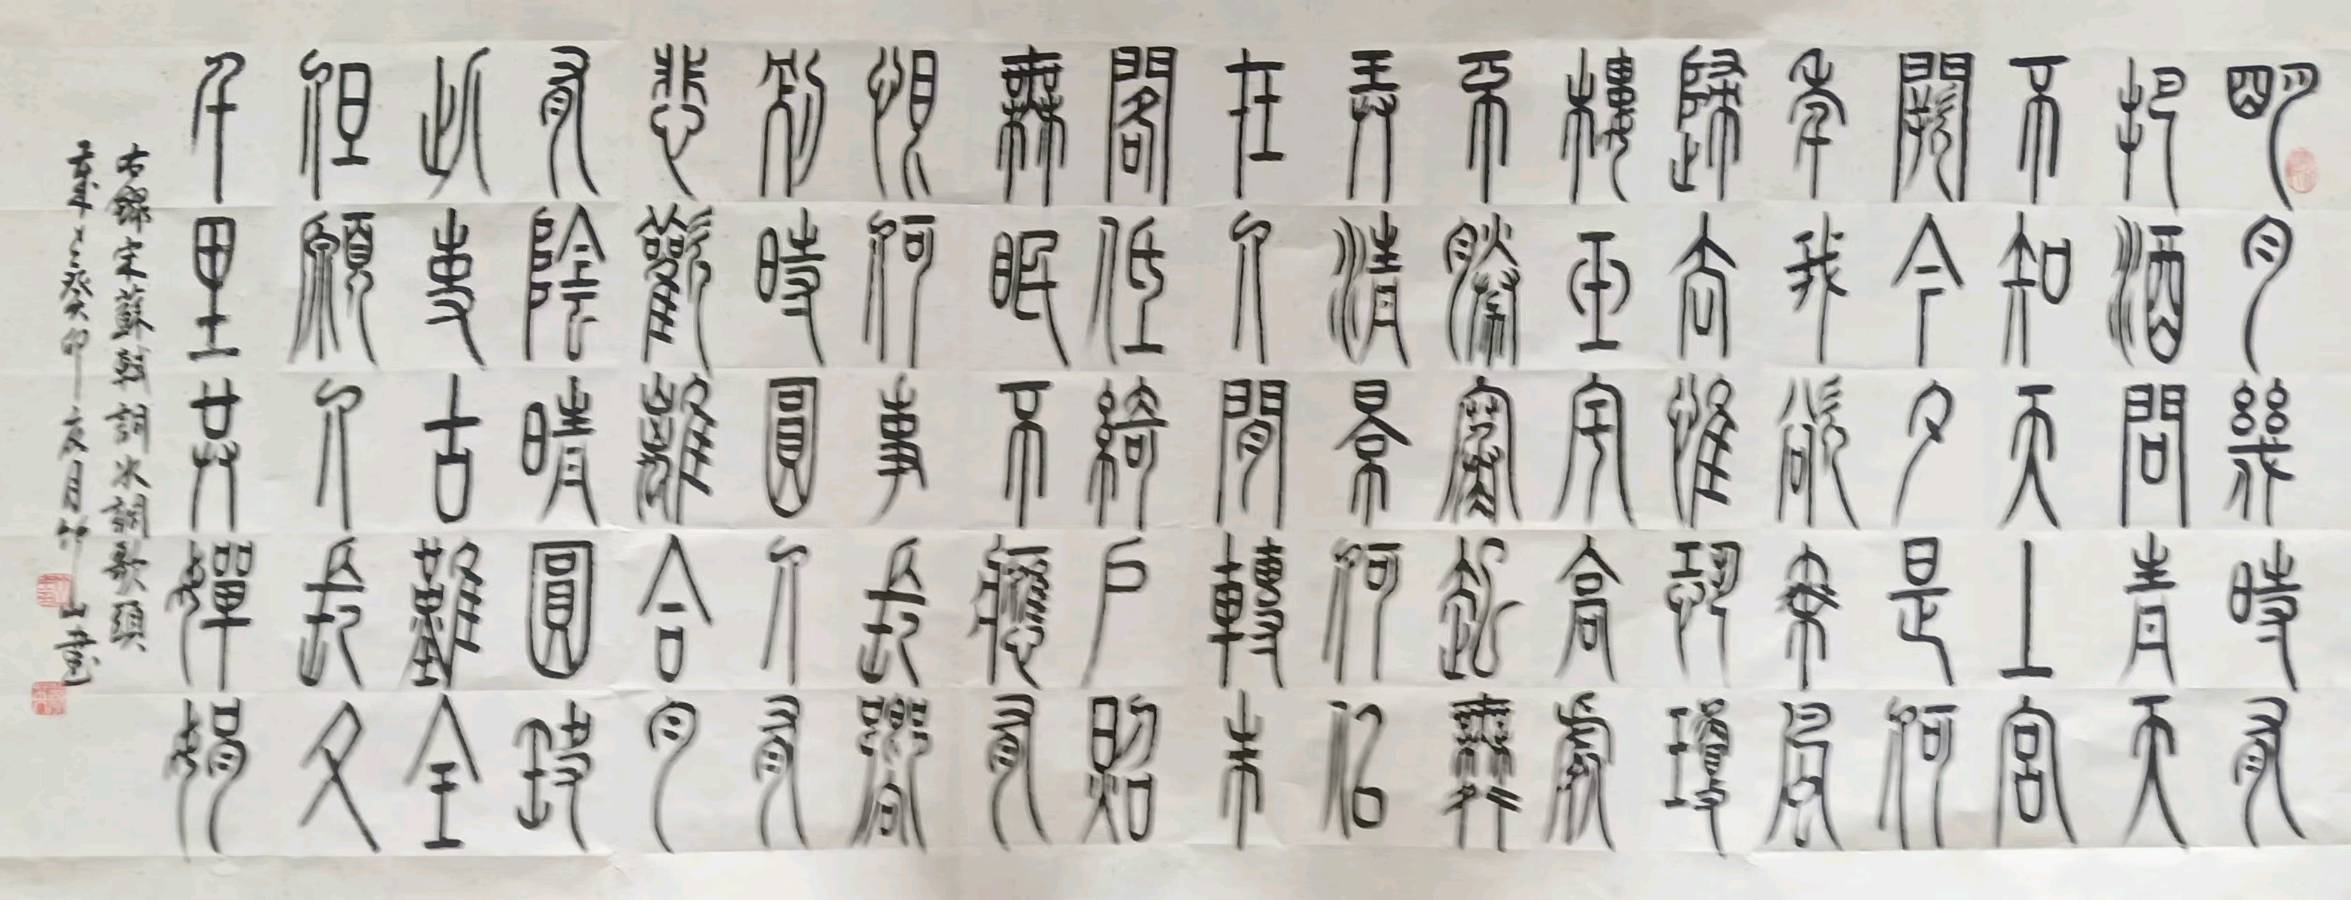 明月幾時有
把酒問青天
不知天上宮
闕今夕是何
年我欲乘風
歸去惟恐瓊
樓玉宇高處
不勝寒起舞
弄清景何佀
在人間轉朱
閣低綺戶照
無眠不應有
恨何事長嚮
別時圓人有
悲歡離合月
有陰晴圓缺
此事古難全
但願人長久
千里共嬋娟
右錄宋蘇軾詞水調歌頭
癸卯亥月竹山書